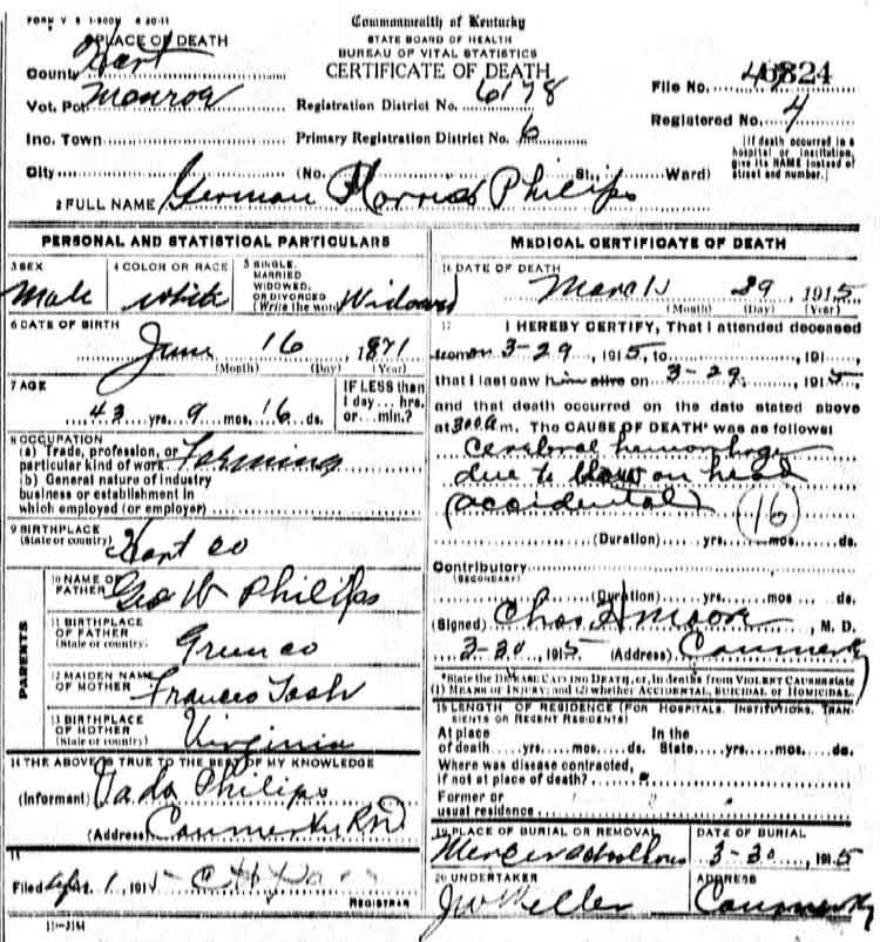 FORM V S 1-500M 6 30-11
Commonwealth of Kentucky
STATE BOARD OF HEALTH
BUREAU OF VITAL STATISTICS
CERTIFICATE OF DEATH
PLACE OF DEATH
County Hart
Vot. Pct Monroe
Inc. Town
City
Registration District No. 6178
Primary Registration District No. 6
(No. St., Ward)
File No. 6824
Registered No. 4
[If death occurred in a
hospital or institution,
give its NAME instead of
street and number.]
2 FULL NAME German Philips
PERSONAL AND STATISTICAL PARTICULARS
3 SEX
Male
4 COLOR OR RACE
White
5 SINGLE,
MARRIED
WIDOWED,
OR DIVORCED
(Write the word) Widowed
6 DATE OF BIRTH
June 16, 1871
(Month) (Day) (Year)
7 AGE
43 yrs. 9 mos. 16 ds.
IF LESS than
1 day... hrs.
or... min.?
8 OCCUPATION
(a) Trade, profession, or
particular kind of work Farming
(b) General nature of industry
business or establishment in
which employed (or employer)
9 BIRTHPLACE
(State or country) Hart co
PARENTS
10 NAME OF
FATHER Geo W Philips
11 BIRTHPLACE
OF FATHER
(State or country) Green co
12 MAIDEN NAME
OF MOTHER Frances Tosh
13 BIRTHPLACE
OF MOTHER
(State or country) Virginia
14 THE ABOVE IS TRUE TO THE BEST OF MY KNOWLEDGE
(Informant) Vada Philips
(Address) Canmer Ky
15
Filed 1, 1915
REGISTRAR
11-3184
MEDICAL CERTIFICATE OF DEATH
16 DATE OF DEATH
March 29, 1915
(Month) (Day) (Year)
17 I HEREBY CERTIFY, That I attended deceased
from on 3-29, 1915, to, 191,
that I last saw him alive on 3-29, 1915,
and that death occurred on the date stated above
at m. The CAUSE OF DEATH* was as follows:
Cerebral hemorrhage
due to blow on head
(accidental) (16)
(Duration) yrs. mos. ds.
Contributory
(SECONDARY)
(Duration) yrs. mos ds.
(Signed) Chas H Moore, M. D.
3-30, 1915 (Address) Canmer Ky
*State the DISEASE CAUSING DEATH, or, in deaths from VIOLENT CAUSES state
(1) MEANS OF INJURY; and (2) whether ACCIDENTAL, SUICIDAL or HOMICIDAL.
18 LENGTH OF RESIDENCE (FOR HOSPITALS, INSTITUTIONS, TRAN-
SIENTS OR RECENT RESIDENTS)
At place of death yrs. mos. ds. In the State yrs. mos. ds.
Where was disease contracted,
if not at place of death?
Former or
usual residence
19 PLACE OF BURIAL OR REMOVAL
Mercer schoolhouse
DATE OF BURIAL
3-30, 1915
20 UNDERTAKER
ADDRESS
Canmer Ky